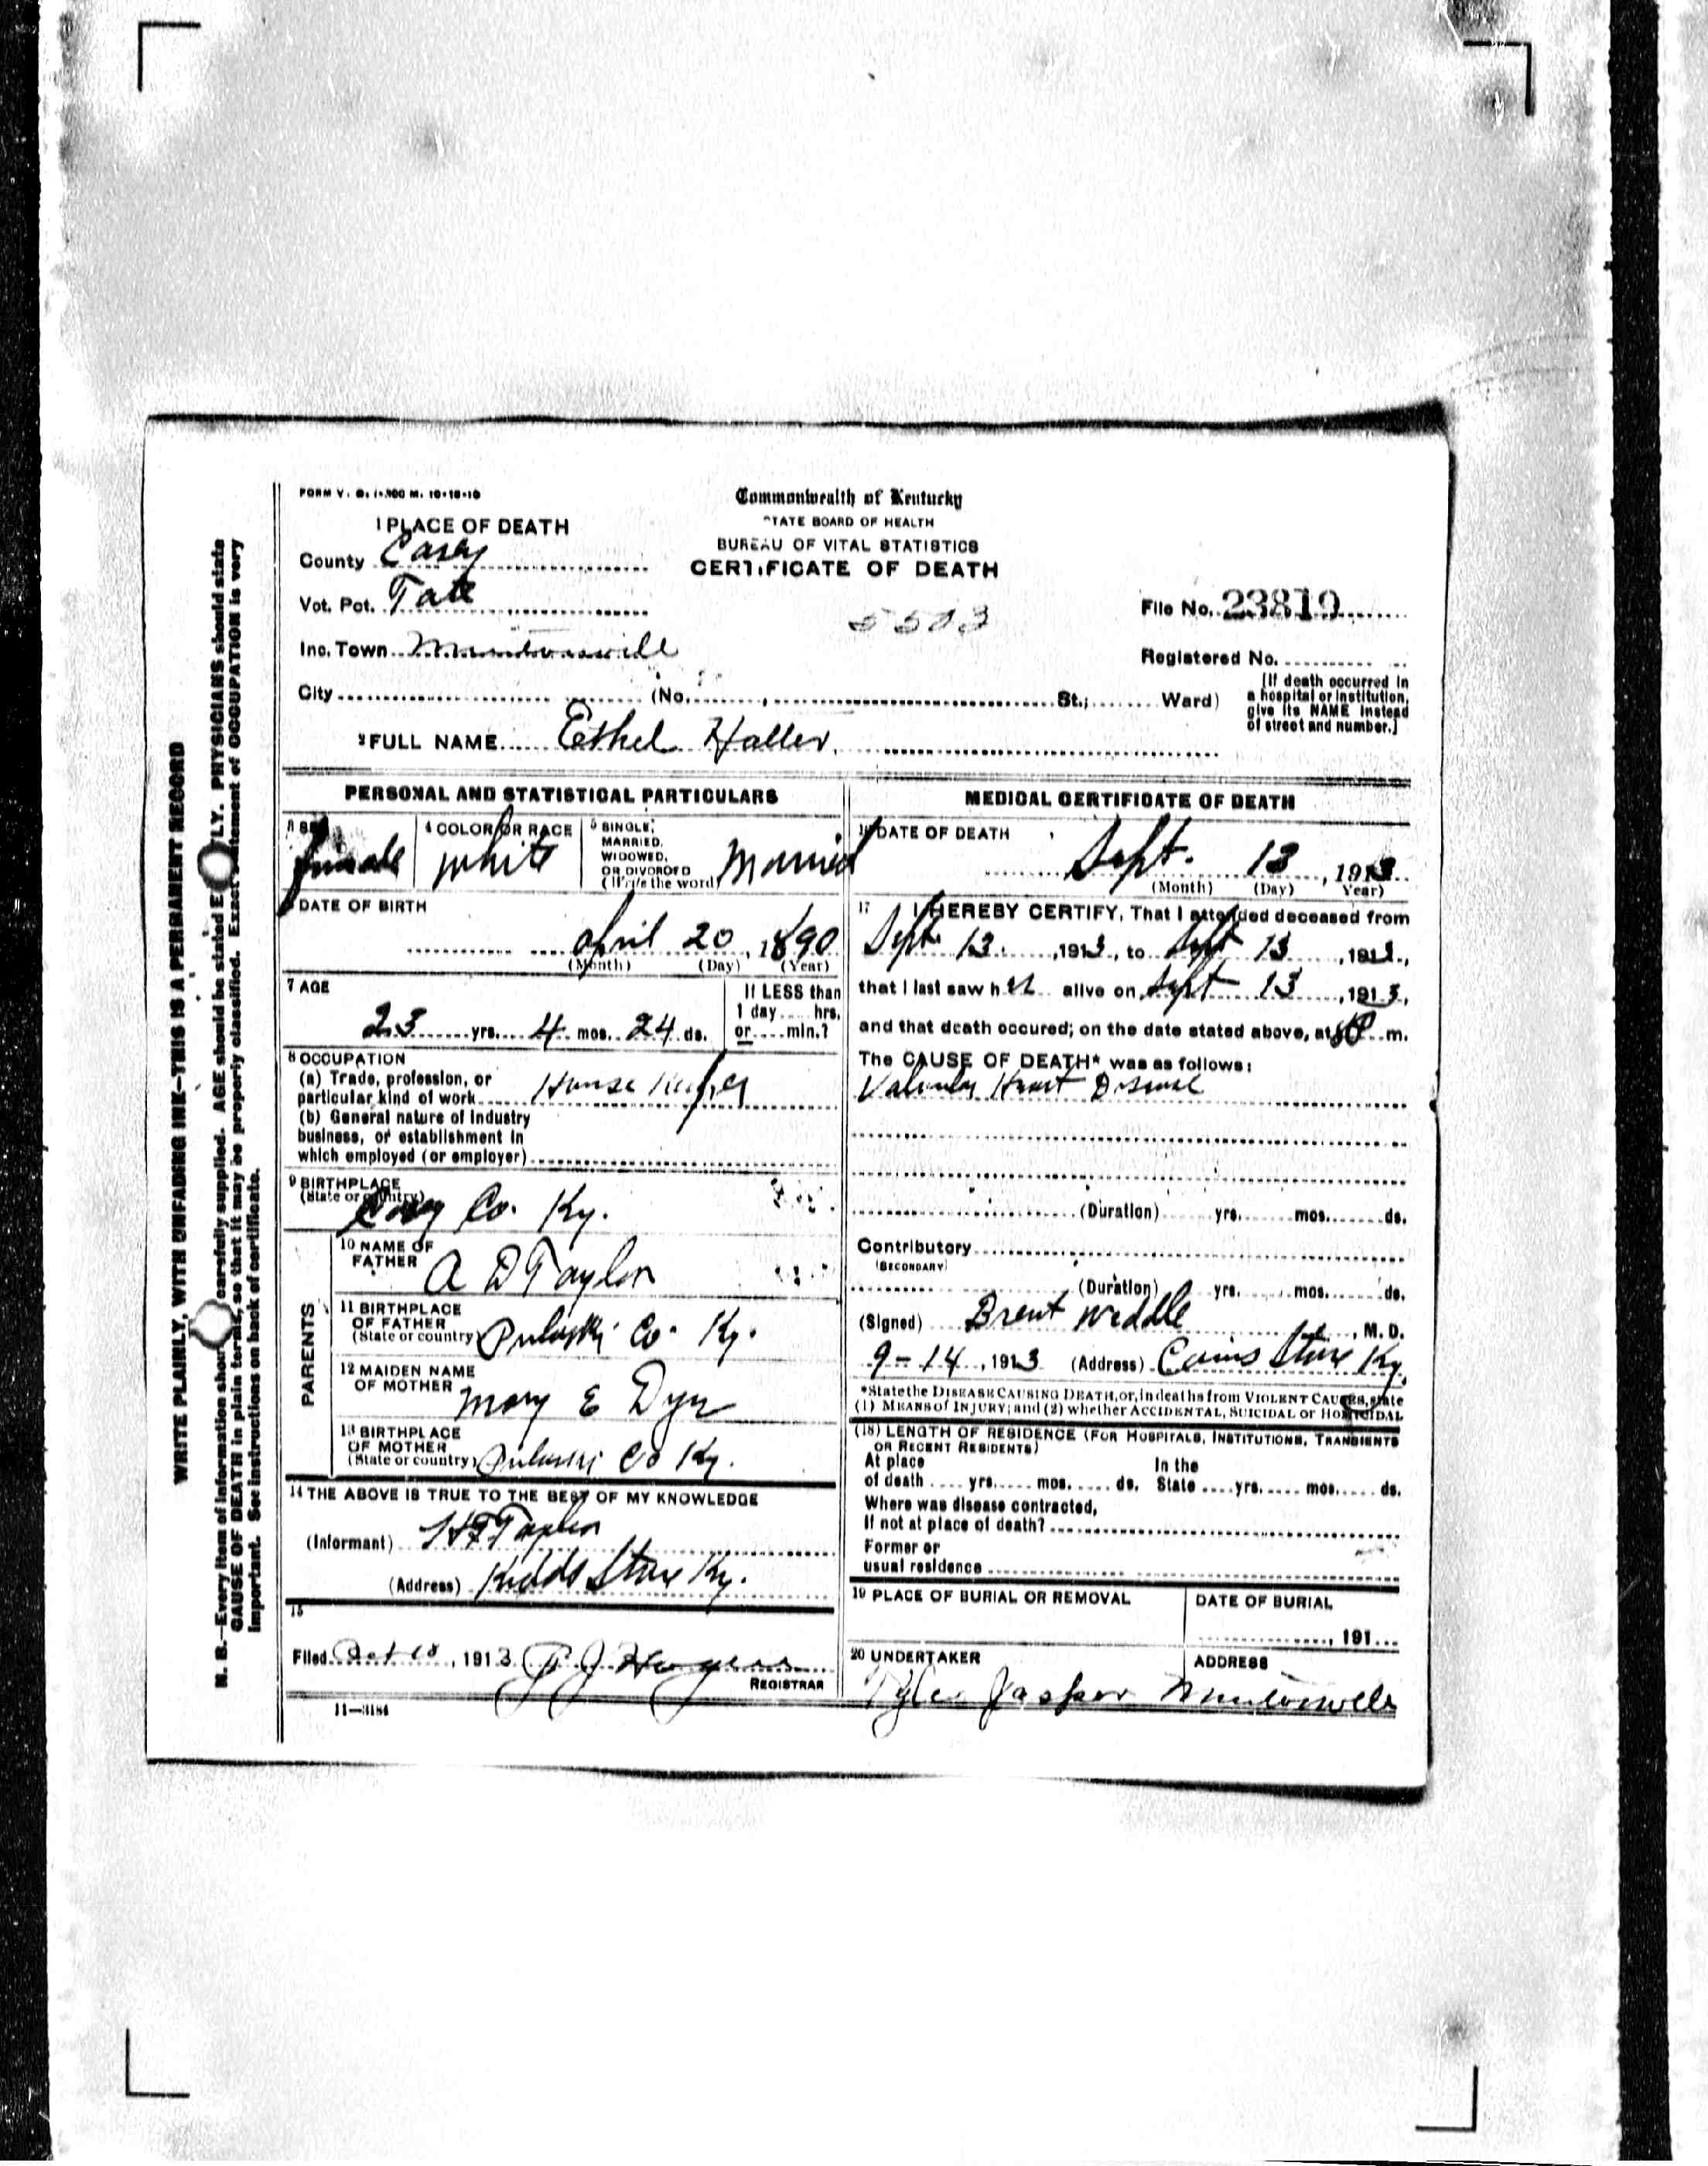 FORM V. S. 1-300 M. 10-18-10
Commonwealth of Kentucky
STATE BOARD OF HEALTH
BUREAU OF VITAL STATISTICS
CERTIFICATE OF DEATH
1 PLACE OF DEATH
County Casey
Vot. Pct. Tate
Inc. Town Mintonville
City (No. , St.; Ward)
5503
File No. 23819
Registered No.
[If death occurred in
a hospital or institution,
give its NAME instead
of street and number.]
2 FULL NAME Ethel Haller
PERSONAL AND STATISTICAL PARTICULARS
3 SEX
female
4 COLOR OR RACE
White
5 SINGLE,
MARRIED,
WIDOWED,
OR DIVORCED
(Write the word)
Married
DATE OF BIRTH
April 20, 1890
(Month) (Day) (Year)
7 AGE
23 yrs. 4 mos. 24 ds.
If LESS than
1 day hrs.
or min.?
8 OCCUPATION
(a) Trade, profession, or
particular kind of work House Keeper
(b) General nature of industry
business, or establishment in
which employed (or employer)
9 BIRTHPLACE
(State or country)
Casey Co. Ky.
PARENTS
10 NAME OF
FATHER A D Taylor
11 BIRTHPLACE
OF FATHER
(State or country) Pulaski Co. Ky.
12 MAIDEN NAME
OF MOTHER Mary E Dye
13 BIRTHPLACE
OF MOTHER
(State or country) Pulaski Co Ky.
14 THE ABOVE IS TRUE TO THE BEST OF MY KNOWLEDGE
(Informant) Taylor
(Address) Kidds Store Ky.
15
Filed Oct 18, 1913
REGISTRAR
11—3184
MEDICAL CERTIFICATE OF DEATH
16 DATE OF DEATH
Sept. 13, 1913
(Month) (Day) Year)
17 I HEREBY CERTIFY, That I attended deceased from
Sept. 13, 1913, to Sept 13, 1913,
that I last saw her alive on Sept 13, 1913,
and that death occured; on the date stated above, at m.
The CAUSE OF DEATH* was as follows:
Valvular Heart Disease
(Duration) yrs. mos. ds.
Contributory
(SECONDARY)
(Duration) yrs. mos. ds.
(Signed) Brent Weddle, M. D.
9-14, 1913 (Address) Cains Store Ky.
*State the DISEASE CAUSING DEATH, or, in deaths from VIOLENT CAUSES, state
(1) MEANS of INJURY; and (2) whether ACCIDENTAL, SUICIDAL or HOMICIDAL
(18) LENGTH OF RESIDENCE (FOR HOSPITALS, INSTITUTIONS, TRANSIENTS
OR RECENT RESIDENTS)
At place In the
of death yrs. mos. ds. State yrs. mos. ds.
Where was disease contracted,
If not at place of death?
Former or
usual residence
19 PLACE OF BURIAL OR REMOVAL
DATE OF BURIAL
, 191
20 UNDERTAKER
ADDRESS
Tyler Jasper Mintonville
WRITE PLAINLY, WITH UNFADING INK—THIS IS A PERMANENT RECORD
N. B.—Every item of information should carefully supplied. AGE should be stated EXACTLY. PHYSICIANS should state
CAUSE OF DEATH in plain terms, so that it may be properly classified. Exact statement of OCCUPATION is very
important. See instructions on back of certificate.